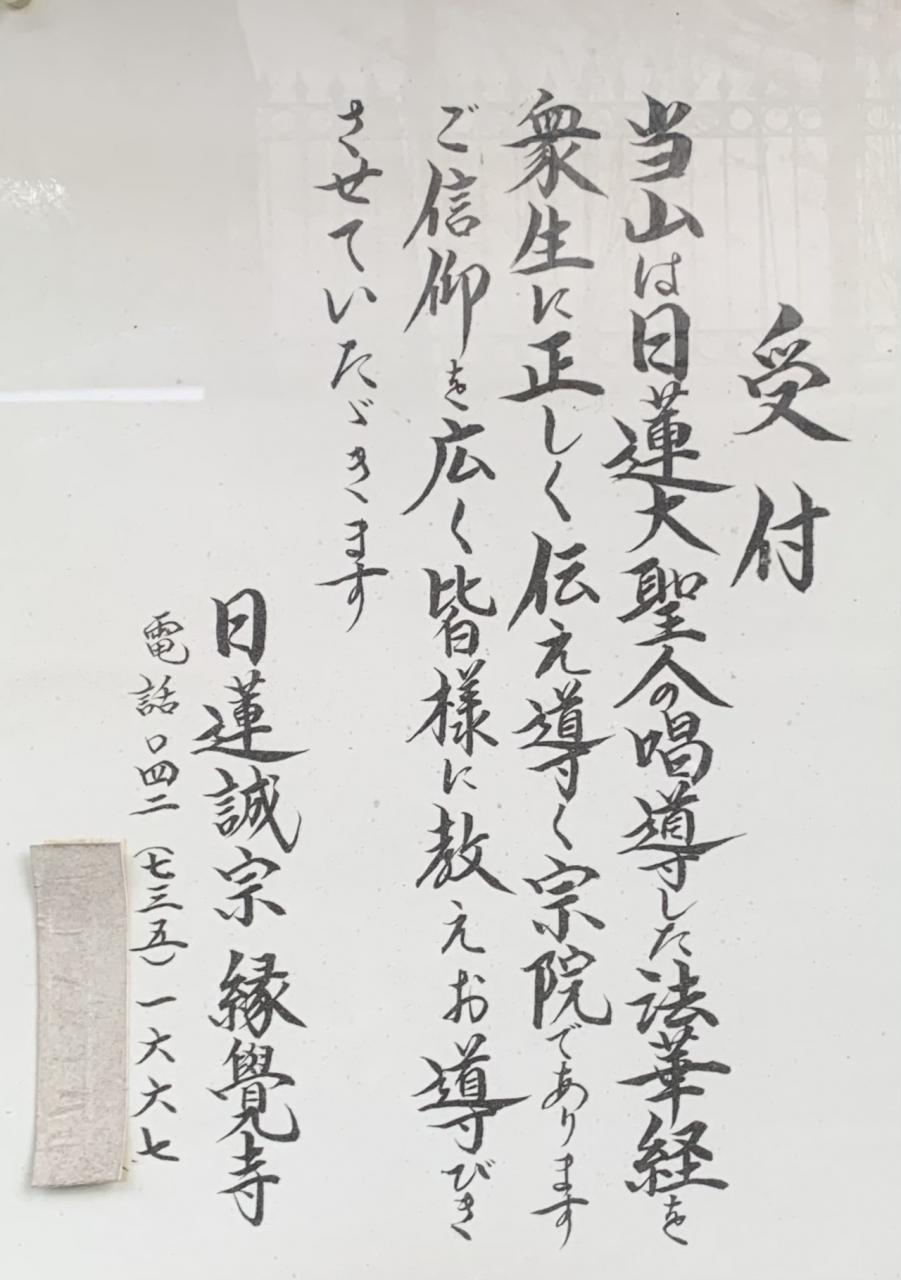 受付
当山は日蓮大聖人の唱導した法華経を
衆生に正しく伝え導く宗院であります
ご信仰を広く皆様に教えお導びき
させていたゞきます
日蓮誠宗 縁覺寺
電話〇四二(七三五)一六六七